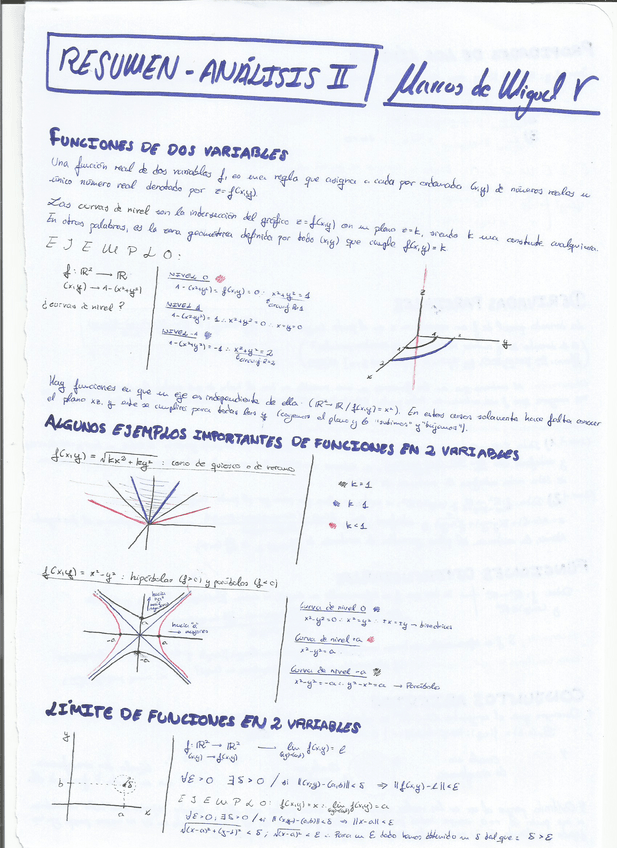 RESUMEN - ANÁLISIS II Marcos de Miguel
FUNCIONES DE DOS VARIABLES
Una función real de dos variables f, es una regla que asigna a cada par ordenado (x,y) de números reales un
único número real denotado por z=f(x,y).
Las curvas de nivel son la intersección del gráfico z=f(x,y) con un plano z=k, siendo k una constante cualquiera.
En otras palabras, es la zona geométrica definida por todo (x,y) que cumple f(x,y)=k
EJEMPLO:
f: ℝ² → ℝ
(x,y) → 1-(x²+y²)
¿curvas de nivel?
NIVEL 0
1-(x²+y²)=f(x,y)=0 ∴ x²+y²=1
NIVEL 1
1-(x²+y²)=1 ∴ x²+y²=0 ∴ x=y=0
NIVEL -1
1-(x²+y²)=-1 ∴ x²+y²=2
z
y
x
Hay funciones en que un eje es independiente de ella (ℝ²→ℝ / f(x,y)=x²). En estos casos solamente hace falta conocer
el plano xz, y este se cumplirá para todas las y (cogemos el plano y lo "subimos" y "bajamos").
ALGUNOS EJEMPLOS IMPORTANTES DE FUNCIONES EN 2 VARIABLES
f(x,y) = √kx²+ky² : cono de
k=1
k 1
k<1
f(x,y) = x²-y² : hipérbolas (f>0) y parábolas (f<0)
-a a
Curva de nivel 0
x²-y²=0 ∴ x²=y² ∴ ±x=±y → bisectrices
Curva de nivel +a
x²-y²=a
Curva de nivel -a
x²-y²=-a ∴ y²-x²=a → Parábola
LÍMITE DE FUNCIONES EN 2 VARIABLES
y
b
δ
a
x
f: ℝ² → ℝ² lim f(x,y)=ℓ
(x,y) → f(x,y)
∀ε>0 ∃δ>0 / si ||(x,y)-(a,b)||<δ ⇒ ||f(x,y)-L||<ε
EJEMPLO: f(x,y)=x ∴ lim f(x,y)=a
∀ε>0; ∃δ>0 / si ||(x,y)-(a,b)||<δ ⇒ ||x-a||<ε
√(x-a)²+(y-b)² < δ ; √(x-a)² < ε - Para un ε dado hemos obtenido un δ tal que: δ>ε